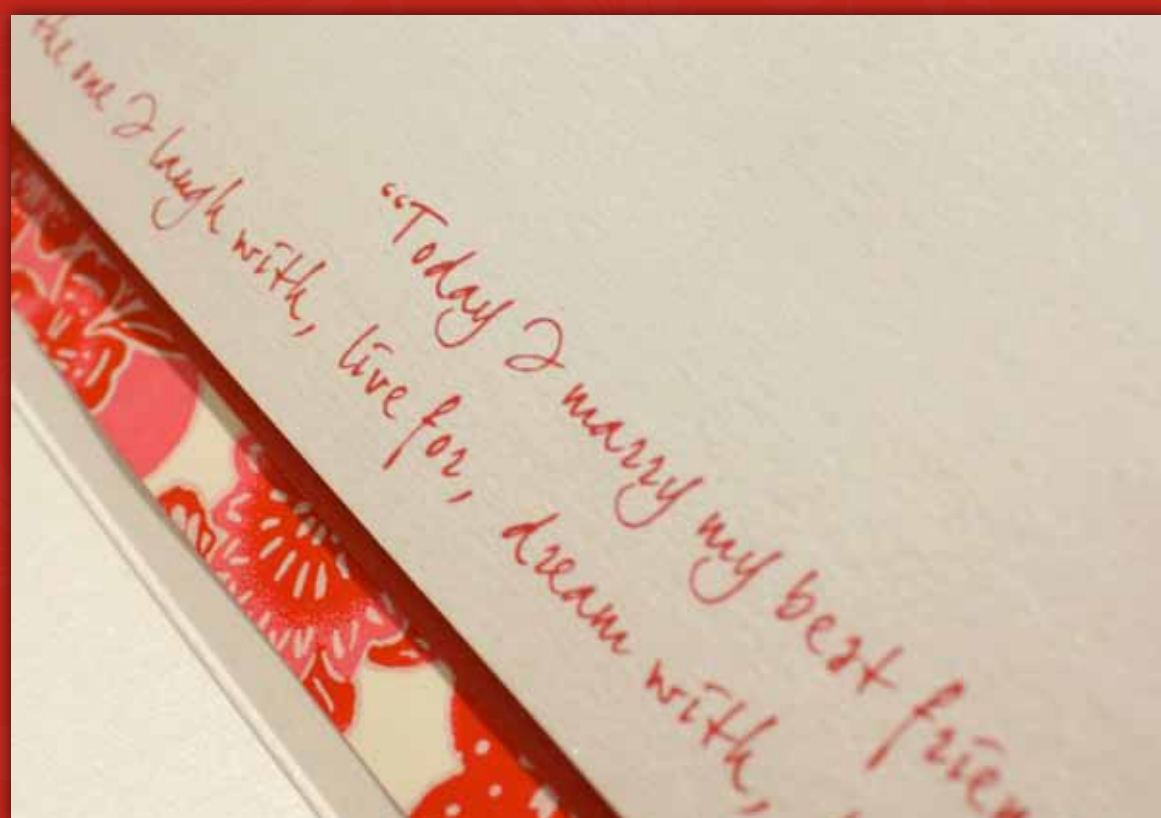 “Today I marry my best frien
the one I laugh with, live for, dream with,